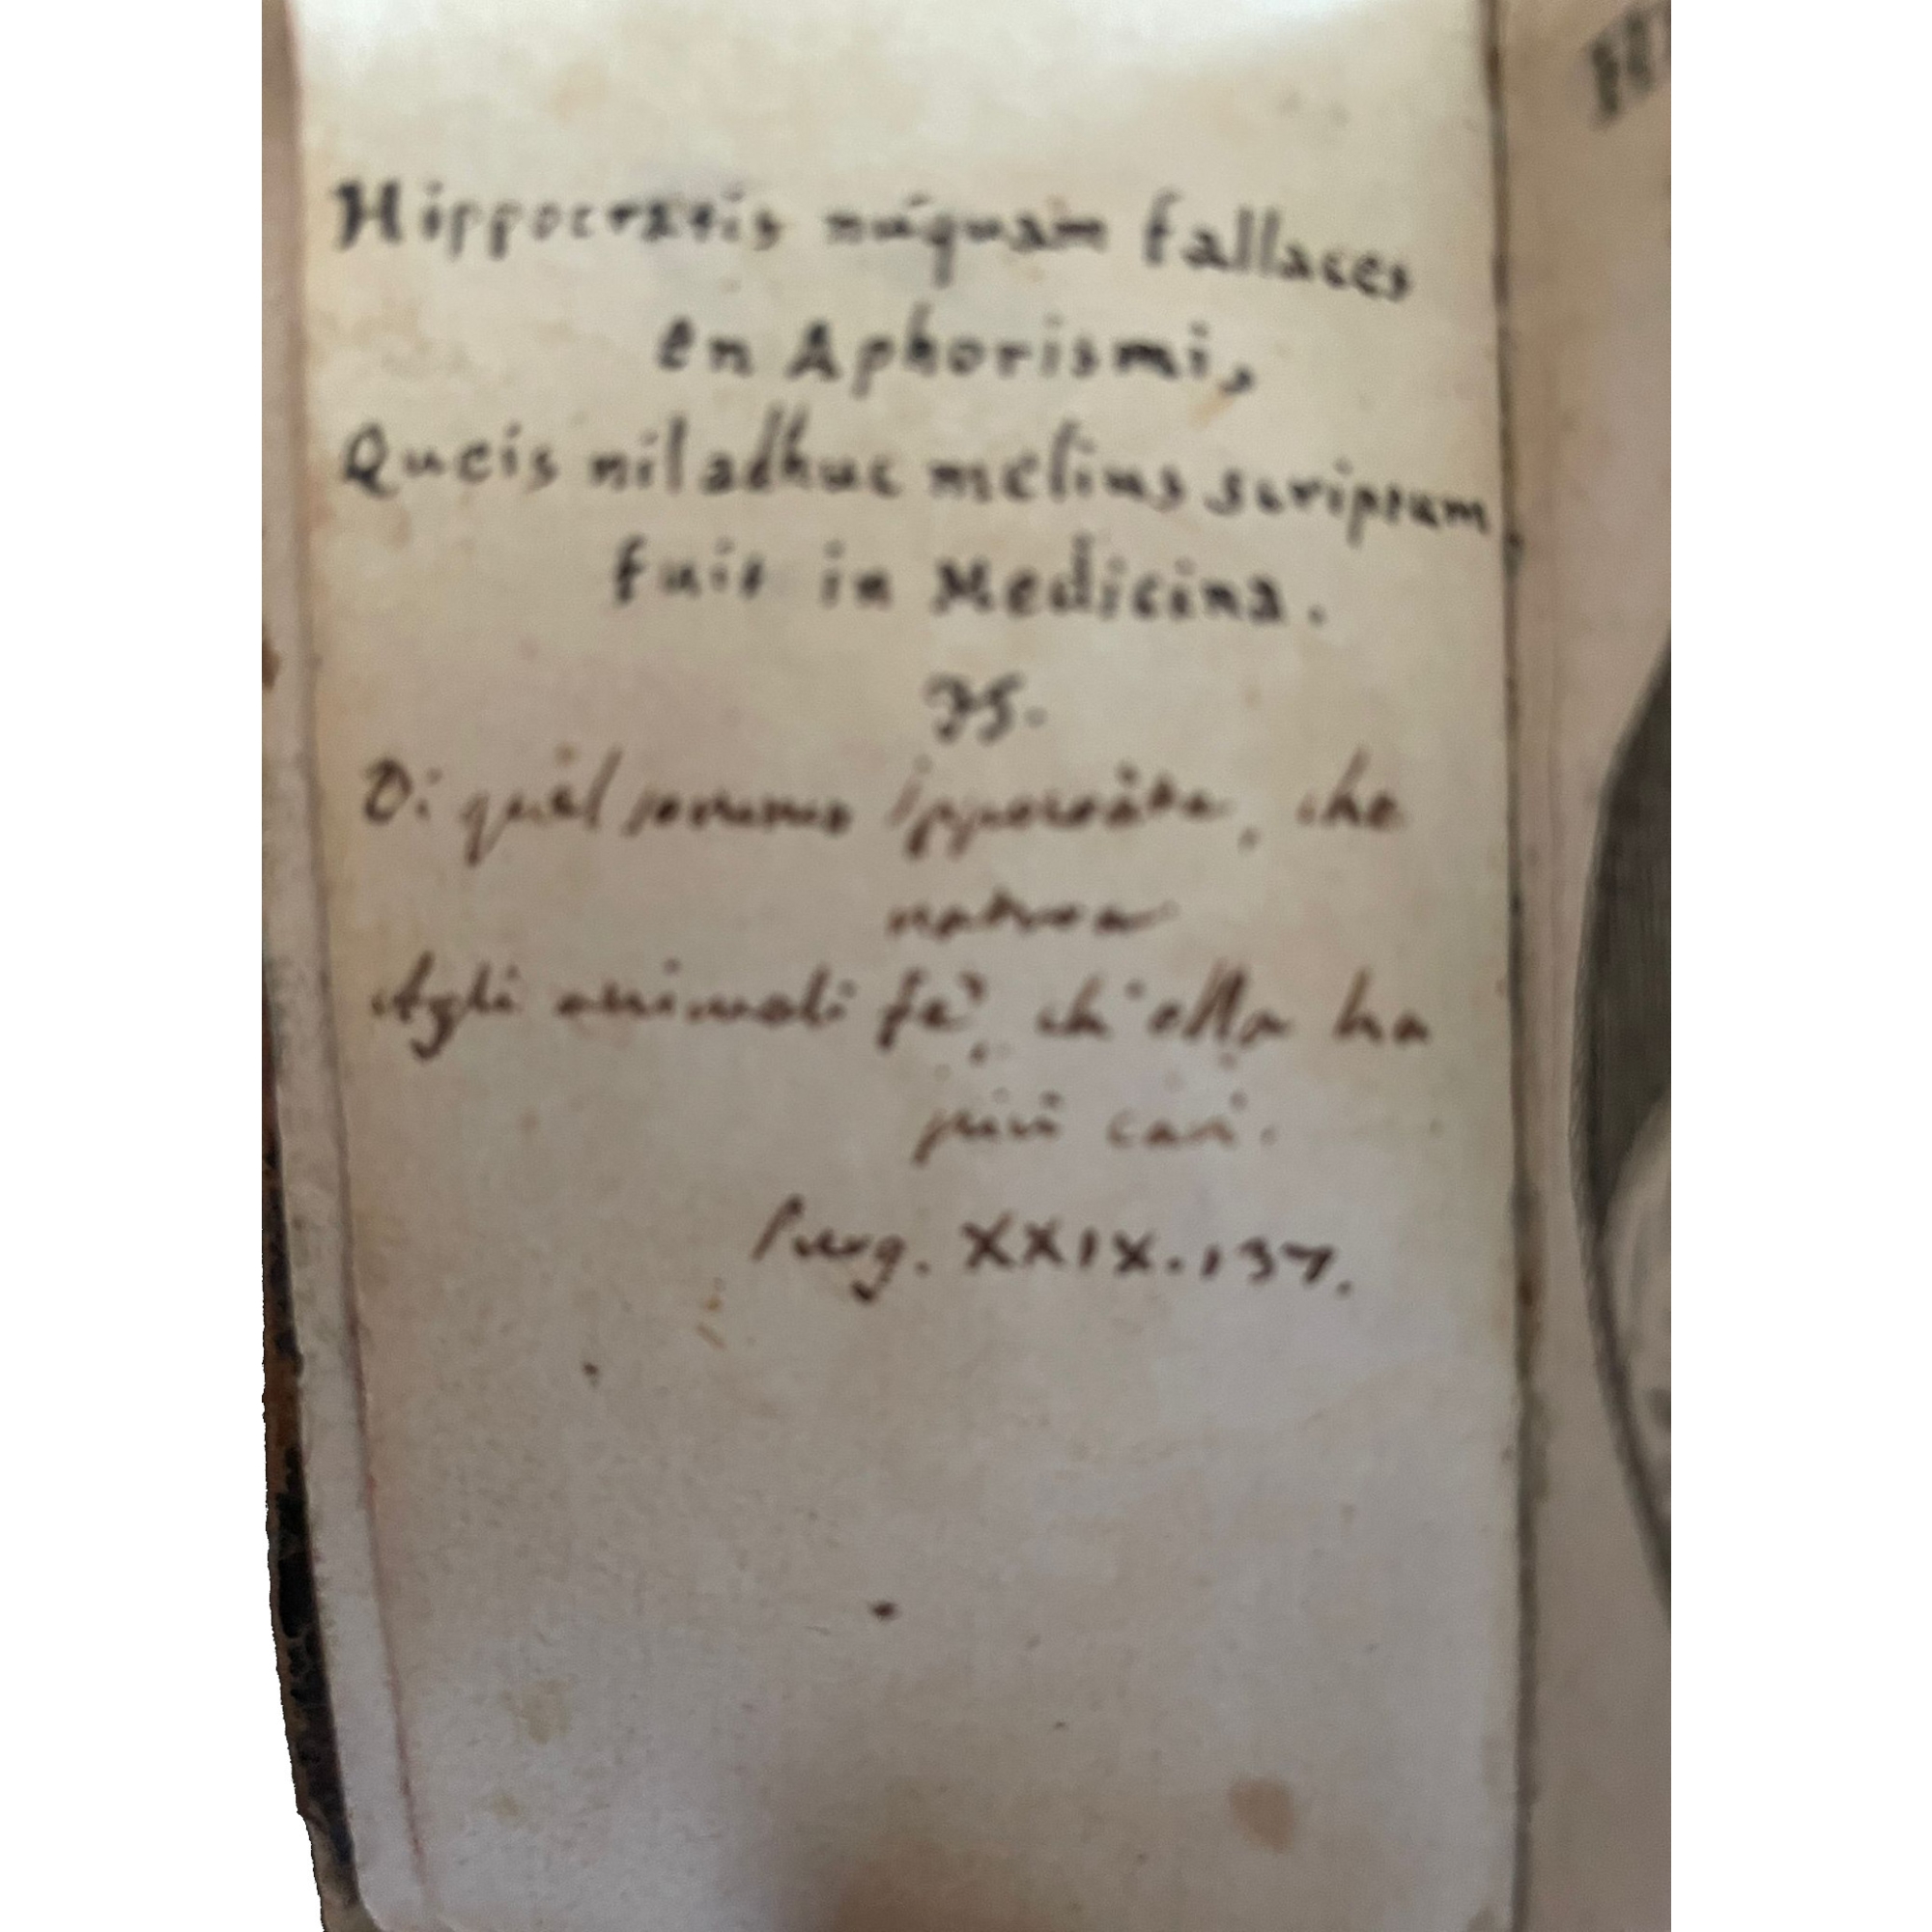 Hippocratis núquam fallaces
en Aphorismi,
Queis nil adhuc melius scriptum
fuit in Medicina.
Di quel sommo Ippocràte, che
natura
Agli animali fe', ch'ella ha
più cari.
Purg. XXIX. 137.